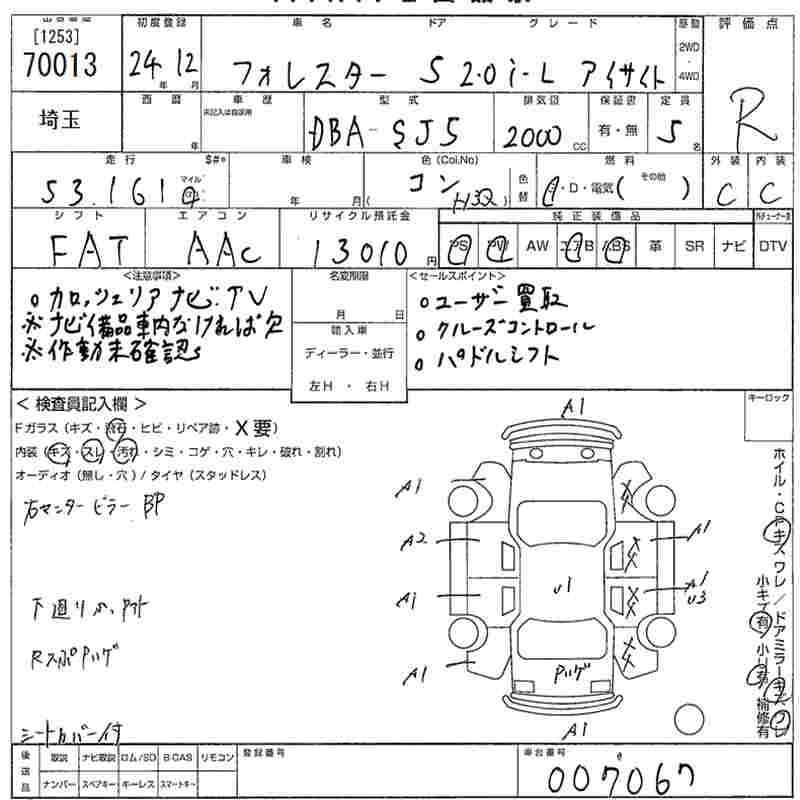 [1253]
70013
初度登録
24年 12月
車名 ドア グレード
フォレスター S 2.0i-L アイサイト
駆動
2WD
・
4WD
評価点
R
埼玉
西暦
年
車歴
未記入は自家用
型式
DBA-SJ5
排気量
2000 CC
保証書
有・無
定員
5名
走行 $#*
53,161 マイル km
車検
年 月
色(Col.No)
コン (H3Q)
色替
燃料
G・D・電気( その他 )
外装
C
内装
C
シフト
FAT
エアコン
AAC
リサイクル預託金
13010円
純正装備品
PS PW AW エアB ABS 革 SR ナビ
DTV
<注意事項>
○カロッツェリアナビ.TV
※ナビ備品車内なければ欠
※作動未確認s
名変期限
月 日
輸入車
ディーラー・並行
左H ・ 右H
<セールスポイント>
○ユーザー買取
○クルーズコントロール
○パドルシフト
< 検査員記入欄 >
Fガラス (キズ・飛石・ヒビ・リペア跡・X要)
内装 (キズ・スレ・汚れ・シミ・コゲ・穴・キレ・破れ・割れ)
オーディオ (無し・穴) / タイヤ (スタッドレス)
右センターピラー BP
下廻り
シートカバー付
キーロック
A1
A1
A2
A1
A1
A1
A1
U3
U1
A1
XX
XX
XX
XX
ホイル・CPキズ ワレ/ドアミラーキズ ワレ
小キズ有/小U有/補修有
後送品
取説 ナビ取説 ロム/SD B-CAS リモコン
ナンバー スペアキー キーレス スマートキー
登録番号
車台番号
007067